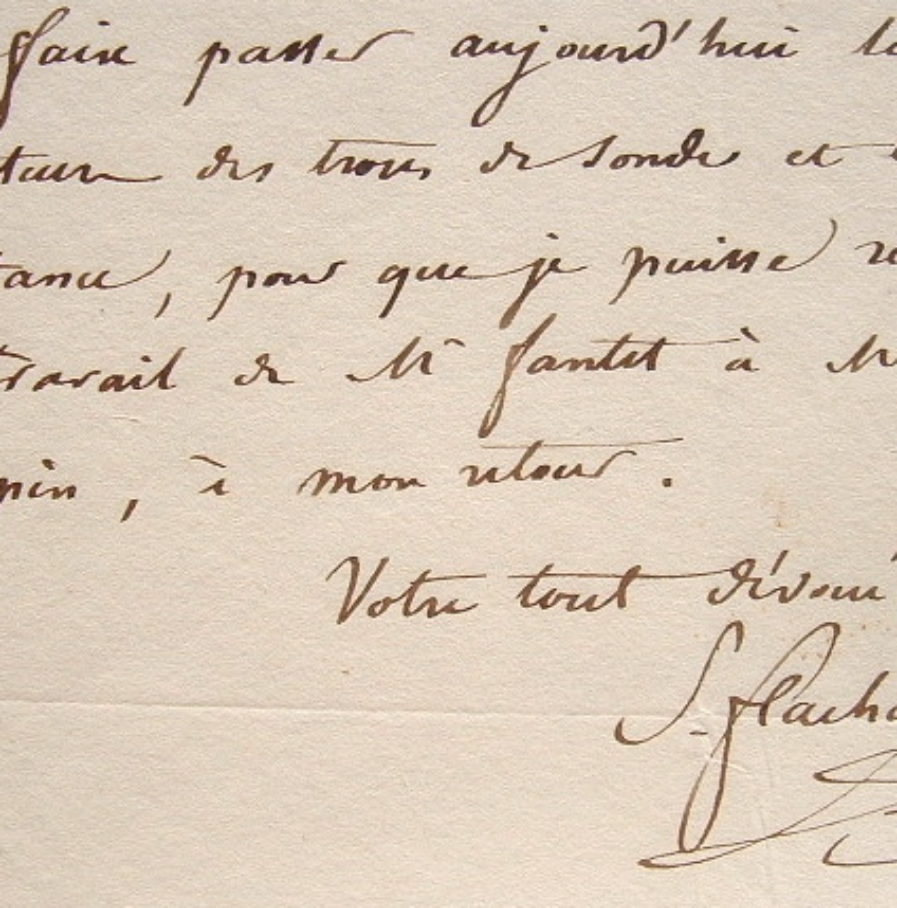 faire passer aujourd'hui le
teurs des trous de sonde et
tance, pour que je puisse re
travail de Mr fantet à M
pin, à mon retour.
Votre tout dévoué
S. flacha